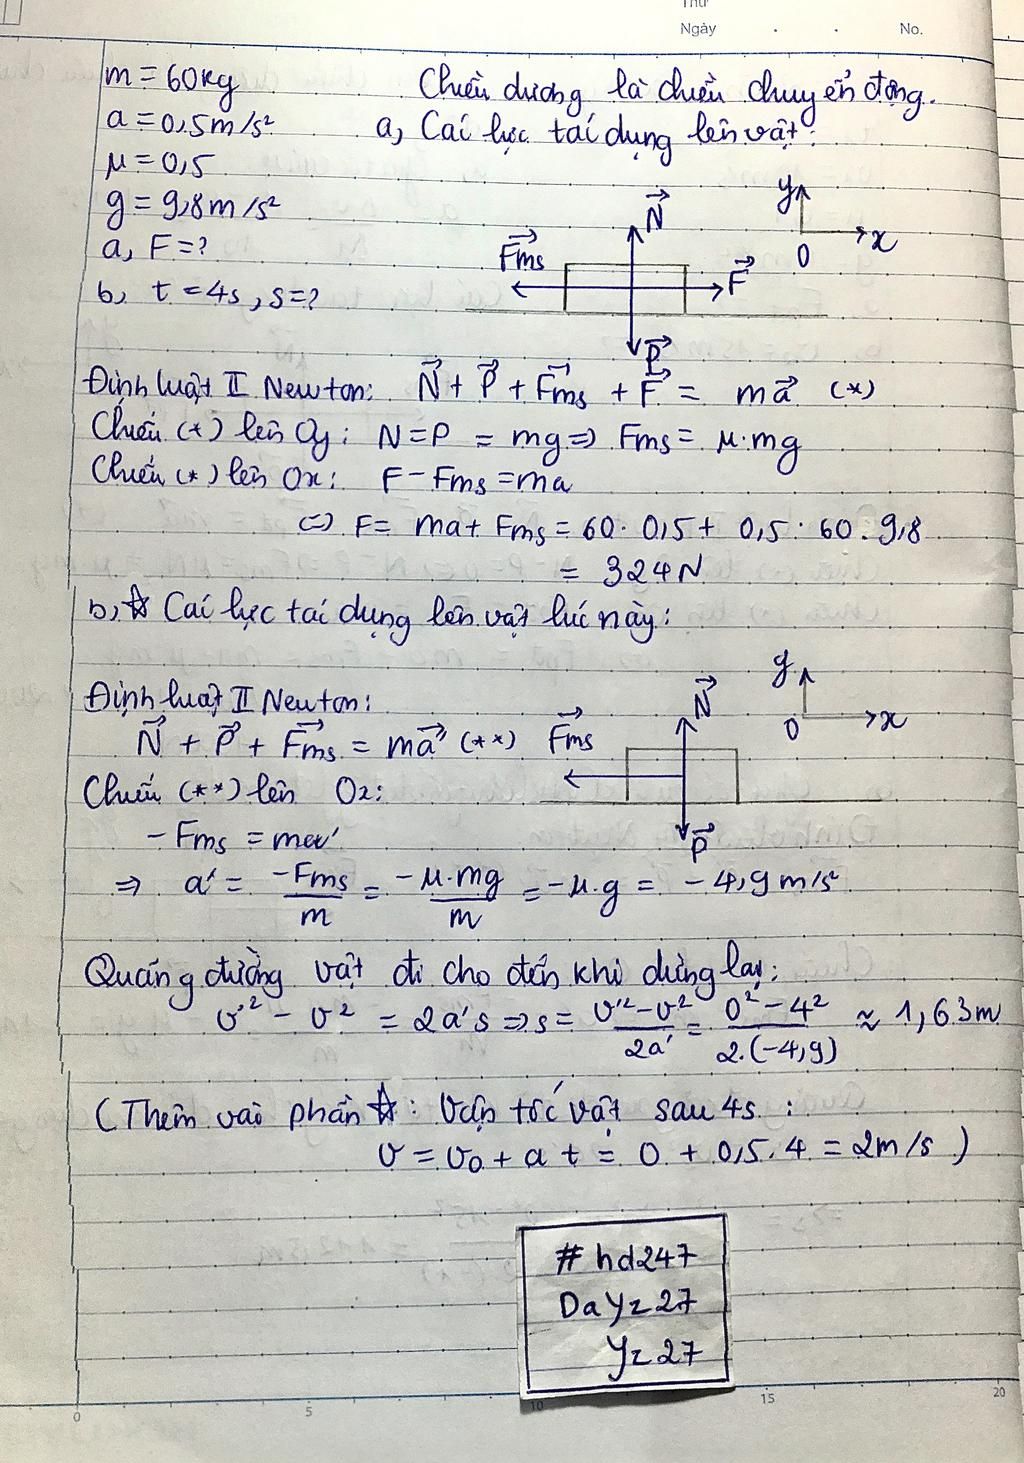 Thứ
Ngày . . No.
m = 60kg
a = 0,5m/s²
μ = 0,5
g = 9,8m/s²
a, F = ?
b, t = 4s, s = ?
Chiều dương là chiều chuyển động.
a, Các lực tác dụng lên vật:
N
y
Fms
F
x
O
P
Định luật II Newton: N + P + Fms + F = ma (*)
Chiếu (*) lên Oy: N = P = mg => Fms = μ.mg
Chiếu (*) lên Ox: F - Fms = ma
<=> F = ma + Fms = 60.0,5 + 0,5.60.9,8
= 324N
b, ☆ Các lực tác dụng lên vật lúc này:
y
N
x
O
Fms
P
Định luật II Newton:
N + P + Fms = ma' (**)
Chiếu (**) lên Ox:
- Fms = ma'
=> a' = -Fms/m = -μ.mg/m = -μ.g = -4,9m/s²
Quãng đường vật đi cho đến khi dừng lại:
v'² - v² = 2a's => s = v'²-v²/2a' = 0²-4²/2.(-4,9) ≈ 1,63m
(Thêm vào phần ☆: Vận tốc vật sau 4s:
v = v₀ + a t = 0 + 0,5.4 = 2m/s)
#hd247
DaYz27
Yz27
0 5 10 15 20